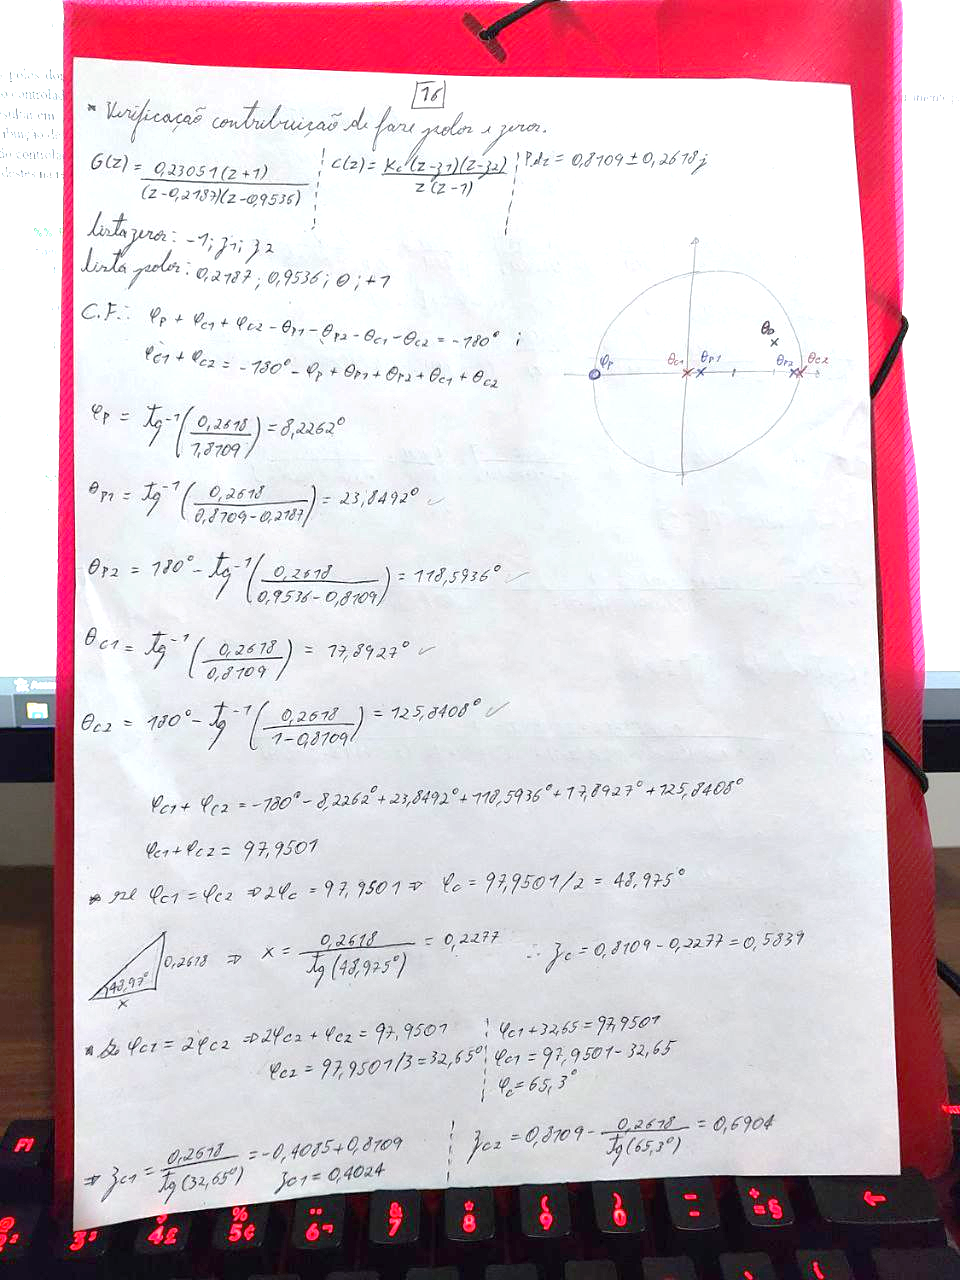 16
* Verificação contribuição de fase polos e zeros.
G(z) = 0,23051(z+1) / (z-0,2187)(z-0,9536) ¦ C(z) = Kc (z-z1)(z-z2) / z(z-1) ¦ Pd2 = 0,8109 ± 0,2618j
lista zeros: -1; z1; z2
lista polos: 0,2187; 0,9536; 0; +1
C.F.: φp + φc1 + φc2 - θp1 - θp2 - θc1 - θc2 = -180° ;
φc1 + φc2 = -180° - φp + θp1 + θp2 + θc1 + θc2
φp θc1 θp1 θD θp2 θc2
φp = tg⁻¹(0,2618 / 1,8109) = 8,2262°
θp1 = tg⁻¹(0,2618 / 0,8109-0,2187) = 23,8492° ✓
θp2 = 180° - tg⁻¹(0,2618 / 0,9536-0,8109) = 118,5936° ✓
θc1 = tg⁻¹(0,2618 / 0,8109) = 17,8927° ✓
θc2 = 180° - tg⁻¹(0,2618 / 1-0,8109) = 125,8408° ✓
φc1 + φc2 = -180° - 8,2262° + 23,8492° + 118,5936° + 17,8927° + 125,8408°
φc1 + φc2 = 97,9501
* se φc1 = φc2 ⇒ 2φc = 97,9501 ⇒ φc = 97,9501/2 = 48,975°
48,97° x 0,2618 ⇒ x = 0,2618 / tg(48,975°) = 0,2277 ∴ zc = 0,8109 - 0,2277 = 0,5839
* Se φc1 = 2φc2 ⇒ 2φc2 + φc2 = 97,9501 ¦ φc1 + 32,65 = 97,9501
φc2 = 97,9501/3 = 32,65° ¦ φc1 = 97,9501 - 32,65
φc = 65,3°
⇒ zc1 = 0,2618 / tg(32,65°) = -0,4085 + 0,8109 ¦ zc2 = 0,8109 - 0,2618 / tg(65,3°) = 0,6904
zc1 = 0,4024
F1
3
4
%
5
6
&
7
*
8
(
9
)
0
-
+
=
§
←